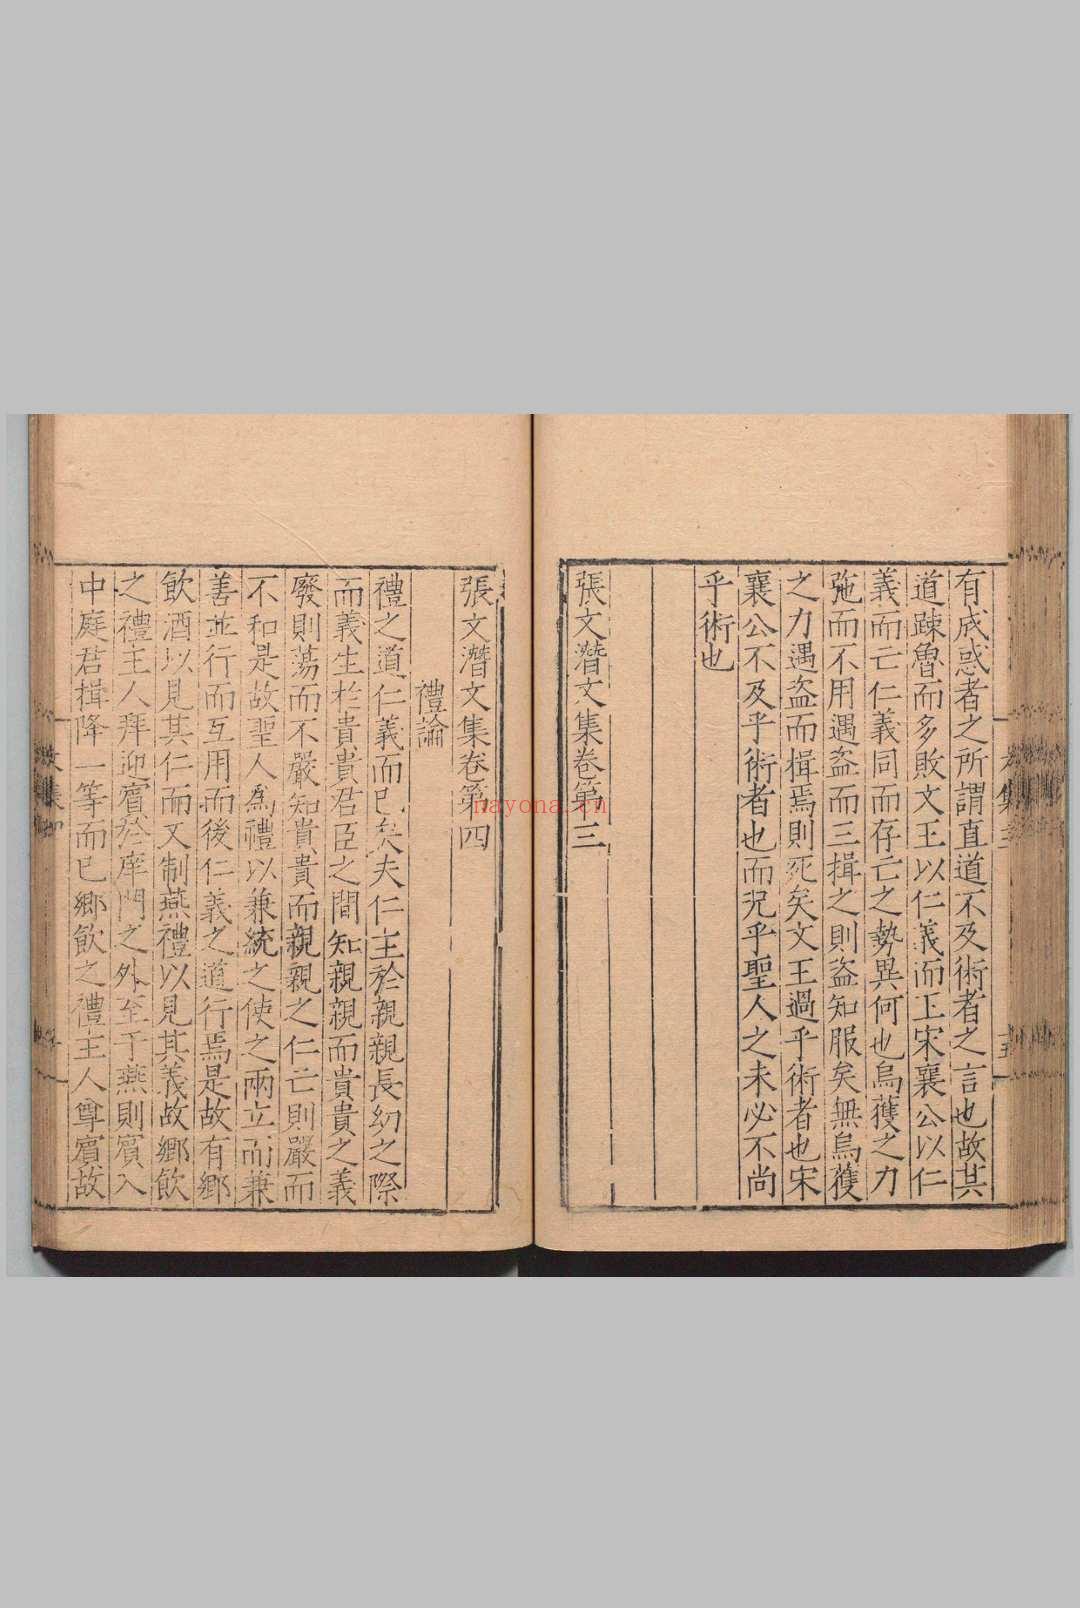 有成惑者之所謂直道不及術者之言也故其
道踈魯而多敗文王以仁義而王宋襄公以仁
義而亡仁義同而存亡之勢異何也烏獲之力
弛而不用遇盗而三揖之則盗知服矣無烏獲
之力遇盗而揖焉則死矣文王過乎術者也宋
襄公不及乎術者也而況乎聖人之未必不尚
乎術也
張文潛文集卷第三
張文潛文集卷第四
禮論
禮之道仁義而已矣夫仁主於親親長幼之際
而義生於貴貴君臣之間知親親而貴貴之義
廢則蕩而不嚴知貴貴而親親之仁亡則嚴而
不和是故聖人為禮以兼統之使之兩立而兼
善並行而互用而後仁義之道行焉是故有鄉
飲酒以見其仁而又制燕禮以見其義故鄉飲
之禮主人拜迎賓於庠門之外至于燕則賓入
中庭君揖降一等而已鄉飲之禮主人尊賓故
nayona.cn